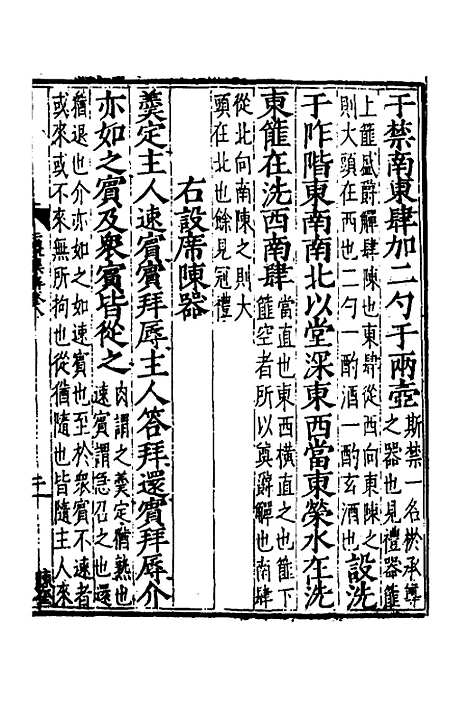 于禁南東肆加二勺于兩壺斯禁一名棜承尊
之器也見禮器篚
上篚盛爵觶肆陳也東肆從西向東陳之
則大頭在西也二勺一酌酒一酌玄酒也設洗
于阼階東南南北以堂深東西當東榮水在洗
東篚在洗西南肆當直也東西橫直之也篚下
篚空者所以奠爵觶也南肆
從北向南陳之則大
頭在北也餘見冠禮
右設席陳器
羹定主人速賓賓拜辱主人答拜還賓拜辱介
亦如之賓及衆賓皆從之肉謂之羹定猶熟也
速賓謂急召之也還
猶退也介亦如之如速賓也至於衆賓不速者
或來或不來無所拘也從猶隨也皆隨主人來